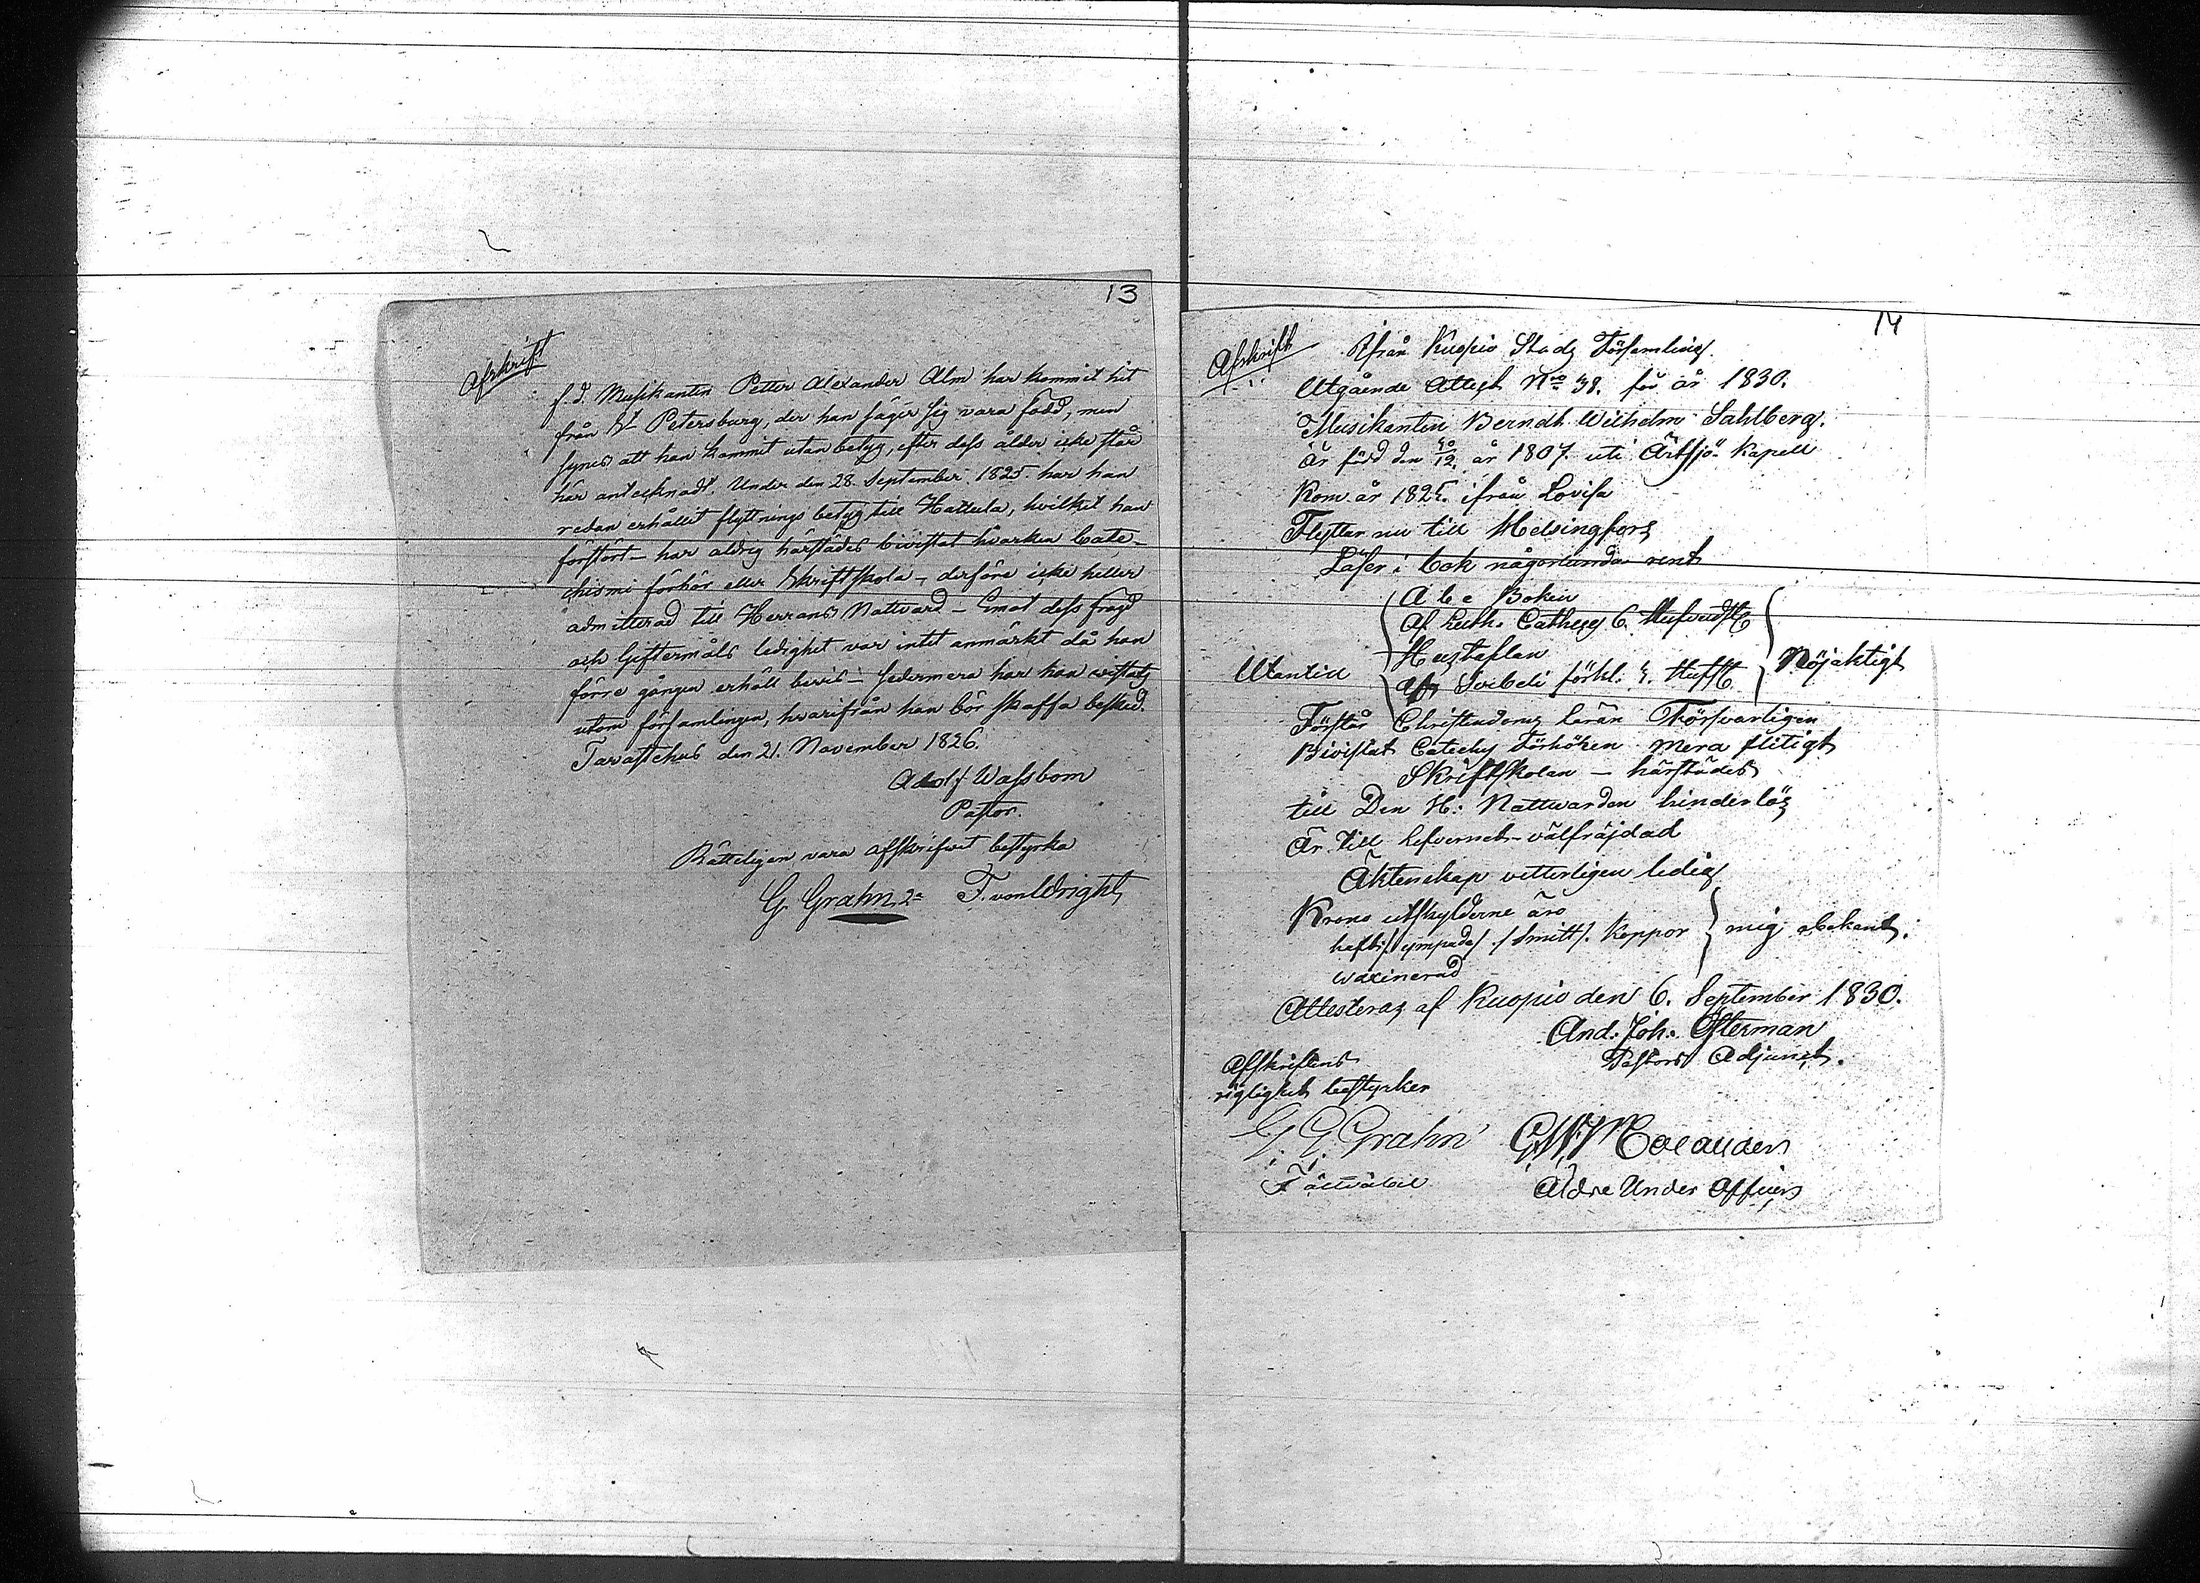 13
Afskrift
f.d. Musikanten Petter Alexander Alm har kommit hit
från St Petersburg, der han säger sig vara född, men
synes att han kommit utan betyg, efter dess ålder icke står
här antecknadt. Under den 28. September. 1825. har han
redan erhållit flyttnings betyg till Hattula, hvilket han
förstört – har aldrig härstädes bivistat hvarken Cate-
chismi förhör eller Skriftskola –, derföre icke heller
admitterad till Herrans Nattvard – Emot dess fragd
och Giftermåls ledighet var intet anmärkt då han
förre gången erhöll bevis – sedermera har han vistats
utom församlingen, hvarifrån han bör skaffa besked.
Tavastehus den 21. November 1826.
Adolf Wassbom
Pastor.
Rätteligen vara afskrifvet bestyrka
G. Grahn F. von Wright
14
Afskrift
Ifrån Kuopio Stads Församling.
Utgående Attest Nro 38. för år 1830.
Musikanten Berndt Wilhelm Sahlberg.
Är född den år 1807. uti Artsjö Kapell
Kom år 1825. ifrån Lovisa
Flyttar nu till Helsingfors
Läser i bok någorlunda rent
A b c Boken
Af Luth. Caches 6. Hufvudst
Hustaflan
Utantill Af Svebeli förkl. Hufst Nöjaktigt
Förstår Christendoms läran Försvarligen
Bivistat Catechs Förhören mera flitigt
Skriftskolan – härstädes
till Den H: Nattvarden hinderlös
Är till lefvernet välfräjdad
Äktenskap vitterligen ledig
Krono utskylderne äro
haft /ympade/ /Smitt/. Koppor mig obekant.
waxinerad
Attesteras af Kuopio den 6. September 1830.
And: Joh: Österman
Pastors Adjunct.
Afskriftens
rigtighet bestyrker
G. G. Grahn
Fältväbel
Äldre Under Officer